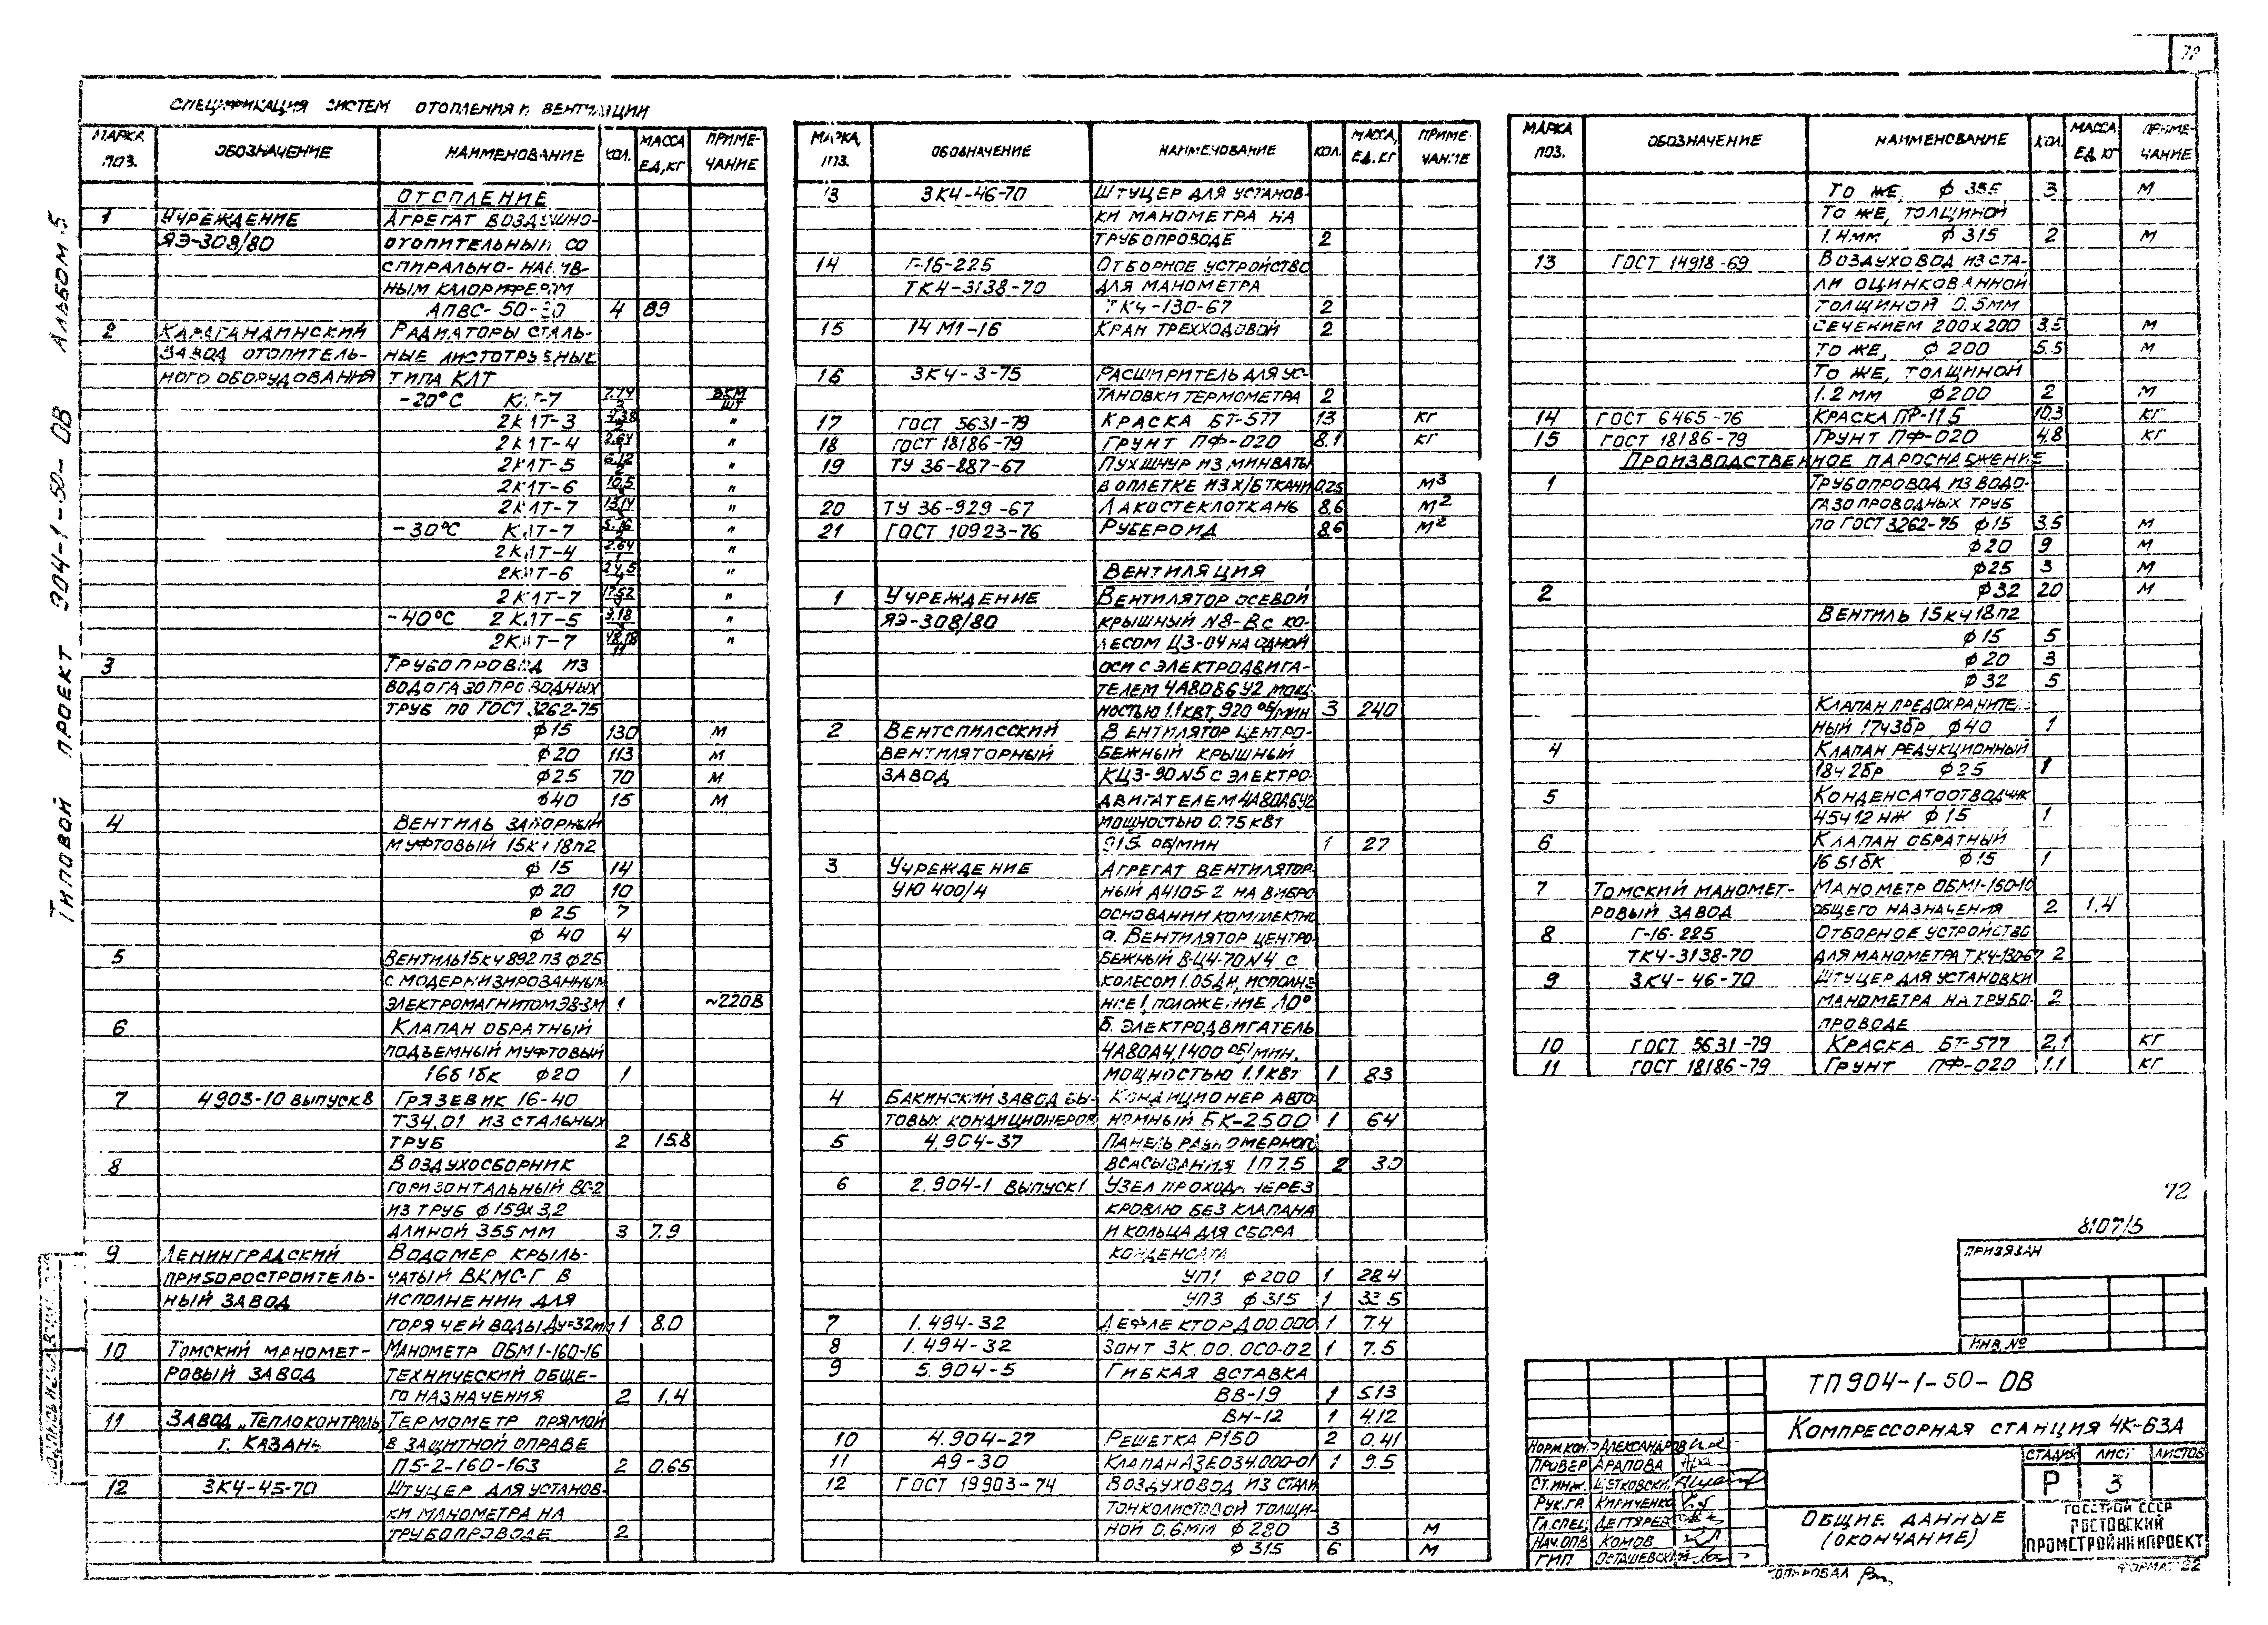 СПЕЦИФИКАЦИЯ СИСТЕМ ОТОПЛЕНИЯ И ВЕНТИЛЯЦИИ
МАРКА ПОЗ. ОБОЗНАЧЕНИЕ НАИМЕНОВАНИЕ КОЛ. МАССА ЕД, КГ ПРИМЕЧАНИЕ
ОТОПЛЕНИЕ
1 УЧРЕЖДЕНИЕ АГРЕГАТ ВОЗДУШНО-
ЯЭ-308/80 ОТОПИТЕЛЬНЫЙ СО
СПИРАЛЬНО-НАВИВ-
НЫМ КАЛОРИФЕРОМ
АПВС-50-30 4 89
2 КАРАГАНДИНСКИЙ РАДИАТОРЫ СТАЛЬ-
ЗАВОД ОТОПИТЕЛЬ- НЫЕ ЛИСТОТРУБНЫЕ
НОГО ОБОРУДОВАНИЯ ТИПА КЛТ
-20°С КЛТ-7 ЭКМ/ШТ
2КЛТ-3 "
2КЛТ-4 "
2КЛТ-5 "
2КЛТ-6 "
2КЛТ-7 "
-30°С КЛТ-7 "
2КЛТ-4 "
2КЛТ-6 "
2КЛТ-7 "
-40°С 2КЛТ-5 "
2КЛТ-7 48,18/11 "
3 ТРУБОПРОВОД ИЗ
ВОДОГАЗОПРОВОДНЫХ
ТРУБ ПО ГОСТ 3262-75
ф15 130 М
ф20 113 М
ф25 70 М
ф40 15 М
4 ВЕНТИЛЬ ЗАПОРНЫЙ
МУФТОВЫЙ 15кч18п2
ф 15 14
ф 20 10
ф 25 7
ф 40 4
5 ВЕНТИЛЬ 15кч892п3 ф25
С МОДЕРНИЗИРОВАННЫМ
ЭЛЕКТРОМАГНИТОМ ЭВ-3М 1 ~220В
6 КЛАПАН ОБРАТНЫЙ
ПОДЪЕМНЫЙ МУФТОВЫЙ
16б1бк ф20 1
7 4903-10 ВЫПУСК 8 ГРЯЗЕВИК 16-40
Т34.01 ИЗ СТАЛЬНЫХ
ТРУБ 2 15.8
8 ВОЗДУХОСБОРНИК
ГОРИЗОНТАЛЬНЫЙ ВС-2
ИЗ ТРУБ ф159х3,2
ДЛИНОЙ 355 ММ 3 7.9
9 ЛЕНИНГРАДСКИЙ ВОДОМЕР КРЫЛЬ-
ПРИБОРОСТРОИТЕЛЬ- ЧАТЫЙ ВКМС-Г В
НЫЙ ЗАВОД ИСПОЛНЕНИИ ДЛЯ
ГОРЯЧЕЙ ВОДЫ Ду=32мм 1 8.0
10 ТОМСКИЙ МАНОМЕТ- МАНОМЕТР ОБМ1-160-16
РОВЫЙ ЗАВОД ТЕХНИЧЕСКИЙ ОБЩЕ-
ГО НАЗНАЧЕНИЯ 2 1.4
11 ЗАВОД „ТЕПЛОКОНТРОЛЬ ТЕРМОМЕТР ПРЯМОЙ
Г. КАЗАНЬ В ЗАЩИТНОЙ ОПРАВЕ
П5-2-160-163 2 0.65
12 3К4-45-70 ШТУЦЕР ДЛЯ УСТАНОВ-
КИ МАНОМЕТРА НА
ТРУБОПРОВОДЕ 2
МАРКА, ПОЗ. ОБОЗНАЧЕНИЕ НАИМЕНОВАНИЕ КОЛ. МАССА, ЕД, КГ ПРИМЕЧАНИЕ
13 3К4-46-70 ШТУЦЕР ДЛЯ УСТАНОВ-
КИ МАНОМЕТРА НА
ТРУБОПРОВОДЕ 2
14 Г-16-225 ОТБОРНОЕ УСТРОЙСТВО
ТК4-3138-70 ДЛЯ МАНОМЕТРА
ТК4-130-67 2
15 14 М1-16 КРАН ТРЕХХОДОВОЙ 2
16 3К4-3-75 РАСШИРИТЕЛЬ ДЛЯ УС-
ТАНОВКИ ТЕРМОМЕТРА 2
17 ГОСТ 5631-79 КРАСКА БТ-577 13 КГ
18 ГОСТ 18186-79 ГРУНТ ПФ-020 8.1 КГ
19 ТУ 36-887-67 ПУХШНУР ИЗ МИНВАТЫ
В ОПЛЕТКЕ ИЗ Х/Б ТКАНИ 0.25 М³
20 ТУ 36-929-67 ЛАКОСТЕКЛОТКАНЬ 8,6 М²
21 ГОСТ 10923-76 РУБЕРОИД 8.6 М²
ВЕНТИЛЯЦИЯ
1 УЧРЕЖДЕНИЕ ВЕНТИЛЯТОР ОСЕВОЙ
ЯЭ-308/80 КРЫШНЫЙ N8-В С КО-
ЛЕСОМ Ц3-04 НА ОДНОЙ
ОСИ С ЭЛЕКТРОДВИГА-
ТЕЛЕМ 4А80В6У2 МОЩ-
НОСТЬЮ 1.1 КВТ, 920 об/мин 3 240
2 ВЕНТСПИЛССКИЙ ВЕНТИЛЯТОР ЦЕНТРО-
ВЕНТИЛЯТОРНЫЙ БЕЖНЫЙ КРЫШНЫЙ
ЗАВОД КЦ3-90 N5 С ЭЛЕКТРО-
ДВИГАТЕЛЕМ 4А80А6У2
МОЩНОСТЬЮ 0.75 КВТ
915 ОБ/МИН 1 27
3 УЧРЕЖДЕНИЕ АГРЕГАТ ВЕНТИЛЯТОР-
УЮ 400/4 НЫЙ А4105-2 НА ВИБРО
ОСНОВАНИИ КОМПЛЕКТНО
а. ВЕНТИЛЯТОР ЦЕНТРО-
БЕЖНЫЙ В-Ц4-70 N4 С
КОЛЕСОМ 1.05Дн, ИСПОЛНЕ-
НИЕ 1, ПОЛОЖЕНИЕ Л0°
б. ЭЛЕКТРОДВИГАТЕЛЬ
4А80А4, 1400 об/мин,
МОЩНОСТЬЮ 1.1 КВТ 1 83
4 БАКИНСКИЙ ЗАВОД БЫ- КОНДИЦИОНЕР АВТО
ТОВЫХ КОНДИЦИОНЕРОВ НОМНЫЙ БК-2500 1 64
5 4.904-37 ПАНЕЛЬ РАВНОМЕРНОГО
ВСАСЫВАНИЯ 1П 7.5 2 30
6 2.904-1 ВЫПУСК 1 УЗЕЛ ПРОХОДА ЧЕРЕЗ
КРОВЛЮ БЕЗ КЛАПАНА
И КОЛЬЦА ДЛЯ СБОРА
КОНДЕНСАТА
УП1 ф200 1 28.4
УП3 ф315 1 33.5
7 1.494-32 ДЕФЛЕКТОР Д00.000 1 7.4
8 1.494-32 ЗОНТ ЗК.00.000-02 1 7.5
9 5.904-5 ГИБКАЯ ВСТАВКА
ВВ-19 1 5.13
ВН-12 1 4.12
10 4.904-27 РЕШЕТКА Р150 2 0.41
11 А9-30 КЛАПАН АЗЕ034.000-01 1 9.5
12 ГОСТ 19903-74 ВОЗДУХОВОД ИЗ СТАЛИ
ТОНКОЛИСТОВОЙ ТОЛЩИ-
НОЙ 0.6ММ ф280 3 М
ф315 6 М
МАРКА ПОЗ. ОБОЗНАЧЕНИЕ НАИМЕНОВАНИЕ КОЛ. МАССА ЕД. КГ ПРИМЕЧАНИЕ
ТО ЖЕ, ф 355 3 М
ТО ЖЕ, ТОЛЩИНОЙ
1.4мм ф315 2 М
13 ГОСТ 14918-69 ВОЗДУХОВОД ИЗ СТА-
ЛИ ОЦИНКОВАННОЙ
ТОЛЩИНОЙ 0.5ММ
СЕЧЕНИЕМ 200х200 3.5 М
ТО ЖЕ, ф 200 5.5 М
ТО ЖЕ, ТОЛЩИНОЙ
1.2 мм ф200 2 М
14 ГОСТ 6465-76 КРАСКА ПФ-115 10.3 КГ
15 ГОСТ 18186-79 ГРУНТ ПФ-020 4.8 КГ
ПРОИЗВОДСТВЕННОЕ ПАРОСНАБЖЕНИЕ
1 ТРУБОПРОВОД ИЗ ВОДО-
ГАЗОПРОВОДНЫХ ТРУБ
ПО ГОСТ 3262-75 ф15 3.5 М
ф20 9 М
ф25 3 М
2 ф32 20 М
ВЕНТИЛЬ 15кч18п2
ф15 5
ф20 3
ф32 5
КЛАПАН ПРЕДОХРАНИТЕЛЬ-
НЫЙ 17ч3бр ф40 1
4 КЛАПАН РЕДУКЦИОННЫЙ
18ч2бр ф25 1
5 КОНДЕНСАТООТВОДЧИК
45ч12нж ф15 1
6 КЛАПАН ОБРАТНЫЙ
16Б1бк ф15 1
7 ТОМСКИЙ МАНОМЕТ- МАНОМЕТР ОБМ1-160-10
РОВЫЙ ЗАВОД ОБЩЕГО НАЗНАЧЕНИЯ 2 1.4
8 Г-16-225 ОТБОРНОЕ УСТРОЙСТВО
ТК4-3138-70 ДЛЯ МАНОМЕТРА ТК4-130-67 2
9 3К4-46-70 ШТУЦЕР ДЛЯ УСТАНОВКИ
МАНОМЕТРА НА ТРУБО- 2
ПРОВОДЕ
10 ГОСТ 5631-79 КРАСКА БТ-577 2,1 КГ
11 ГОСТ 18186-79 ГРУНТ ПФ-020 1.1 КГ
72
8107/5
ПРИВЯЗАН
ИНВ. №
ТП904-1-50-ОВ
КОМПРЕССОРНАЯ СТАНЦИЯ 4К-63А
НОРМ.КОН. АЛЕКСАНДРОВ
ПРОВЕР АРАПОВА
СТ.ИНЖ. ЦВЕТКОВСКИЙ
РУК.ГР. КИРИЧЕНКО
ГЛ.СПЕЦ ДЕГТЯРЕВ
НАЧ.ОПВ КОМОВ
ГИП ОСТАШЕВСКИЙ
СТАДИЯ ЛИСТ ЛИСТОВ
Р 3
ОБЩИЕ ДАННЫЕ
(ОКОНЧАНИЕ)
ГОССТРОЙ СССР
РОСТОВСКИЙ
ПРОМСТРОЙНИИПРОЕКТ
КОПИРОВАЛ
ФОРМАТ 22
ТИПОВОЙ ПРОЕКТ 904-1-50-ОВ АЛЬБОМ 5